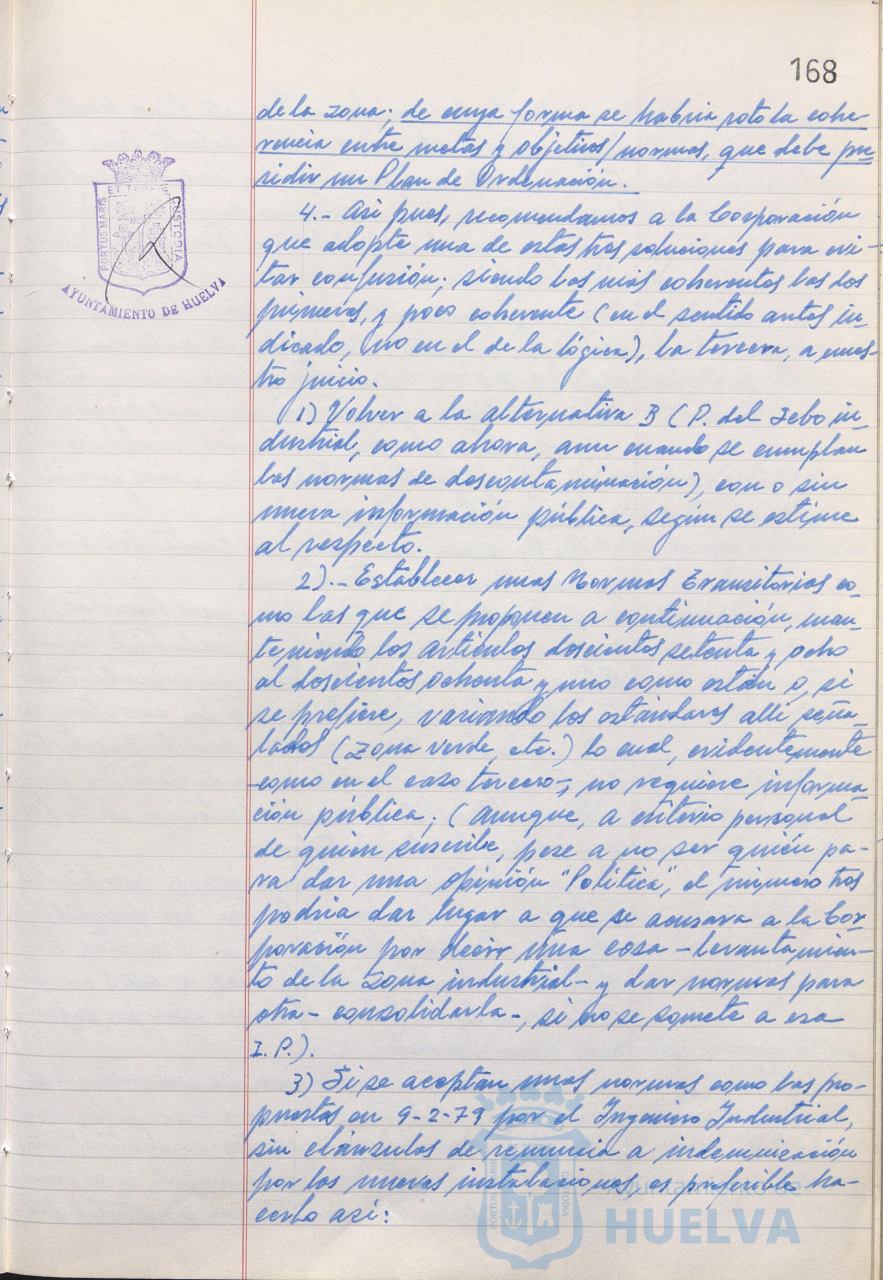 168
de la zona; de cuya forma se habría roto la cohe-
rencia entre metas y objetivos/normas, que debe pre-
sidir un Plan de Ordenación.
4.- Así pues, recomendamos a la Corporación
que adopte una de estas tres soluciones para evi-
tar confusión; siendo las más coherentes las dos
primeras, y poco coherente (en el sentido antes in-
dicado, no en el de la lógica), la tercera, a nues-
tro juicio.
1) Volver a la alternativa B (P. del Sebo in-
dustrial, como ahora, aun cuando se cumplan
las normas de descontaminación), con o sin
nueva información pública, según se estime
al respecto.
2).- Establecer unas Normas Transitorias co-
mo las que se proponen a continuación, man-
teniendo los artículos doscientos setenta y ocho
al doscientos ochenta y uno como están o, si
se prefiere, variando los estándares allí seña-
lados (zona verde, etc.) lo cual, evidentemente
-como en el caso tercero-, no requiere informa-
ción pública; (aunque, a criterio personal
de quien suscribe, pese a no ser quién pa-
ra dar una opinión "Política", el número tres
podría dar lugar a que se acusara a la Cor-
poración por decir una cosa -levantamien-
to de la zona industrial- y dar normas para
otra- consolidarla-, si no se somete a esa
I.P.).
3) Si se aceptan unas normas como las pro-
puestas en 9-2-79 por el Ingeniero Industrial,
sin cláusulas de renuncia a indemnización
por las nuevas instalaciones, es preferible ha-
cerlo así:
PORTUS MARIS ET TERRAE CUSTODIA
AYUNTAMIENTO DE HUELVA
Ayuntamiento de
HUELVA
PORTUS MARIS CUSTODIA